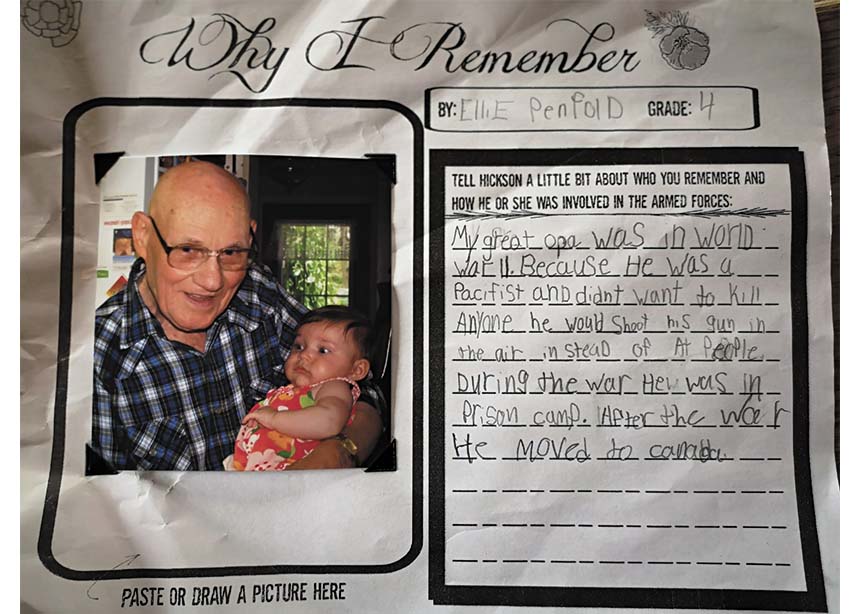 Why I Remember
BY: Ellie Penfold GRADE: 4
TELL HICKSON A LITTLE BIT ABOUT WHO YOU REMEMBER AND
HOW HE OR SHE WAS INVOLVED IN THE ARMED FORCES:
My great opa was in world
war II. Because He was a
Pacifist and didnt want to kill
Anyone he would shoot his gun in
the air in stead of At People
During the war He was in
Prison camp. After the war
He moved to canada.
PASTE OR DRAW A PICTURE HERE